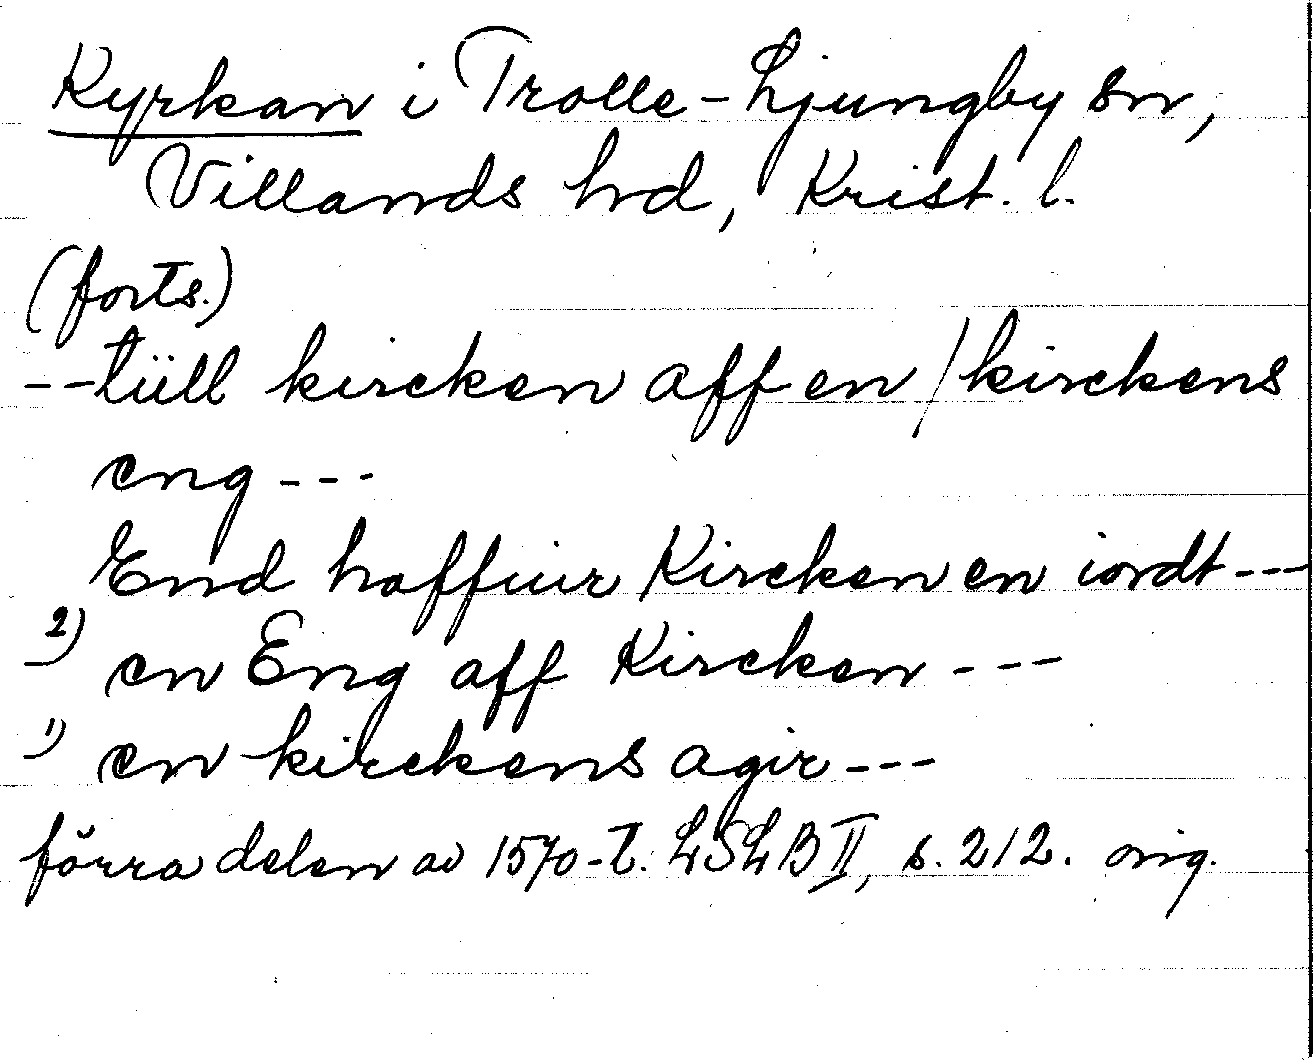 Kyrkan i Trolle-Ljungby sn,
Villands hd, Krist. l.
(forts.)
--tüll kircken aff en / kirckens
eng ---
End haffuir Kircken en iordt---
2) en Eng aff Kircken ---
1) en kirckens agir ---
förra delen av 1570-t. LSLB II, s. 212. orig.